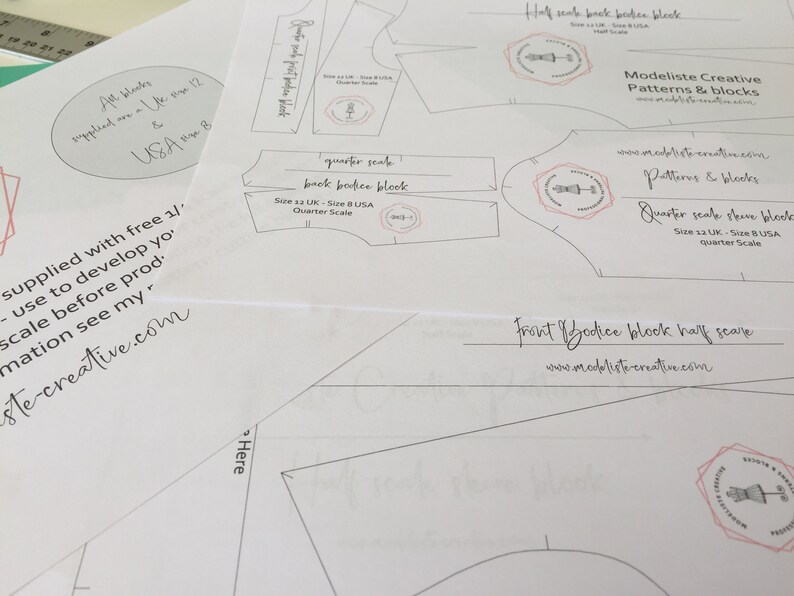 7
20 21 22
All blocks
supplied are a UK size 12
&
USA size 8
supplied with free 1/
- use to develop yo
scale before prod
mation see my
ste-creative.com
Quarter scale front bodice block
Size 12 UK - Size 8 USA
Quarter Scale
Half scale back bodice block
Size 12 UK - Size 8 USA
Half Scale
Modeliste Creative
Patterns & blocks
www.modeliste-creative.com
quarter scale
back bodice block
Size 12 UK - Size 8 USA
Quarter Scale
www.modeliste-creative.com
Patterns & blocks
Quarter scale sleeve block
Size 12 UK - Size 8 USA
quarter Scale
MODELISTE CREATIVE
Front Bodice block half scale
www.modeliste-creative.com
Here
Half scale sleeve block
MODELISTE CREATIVE
PATTERNS & BLOCKS